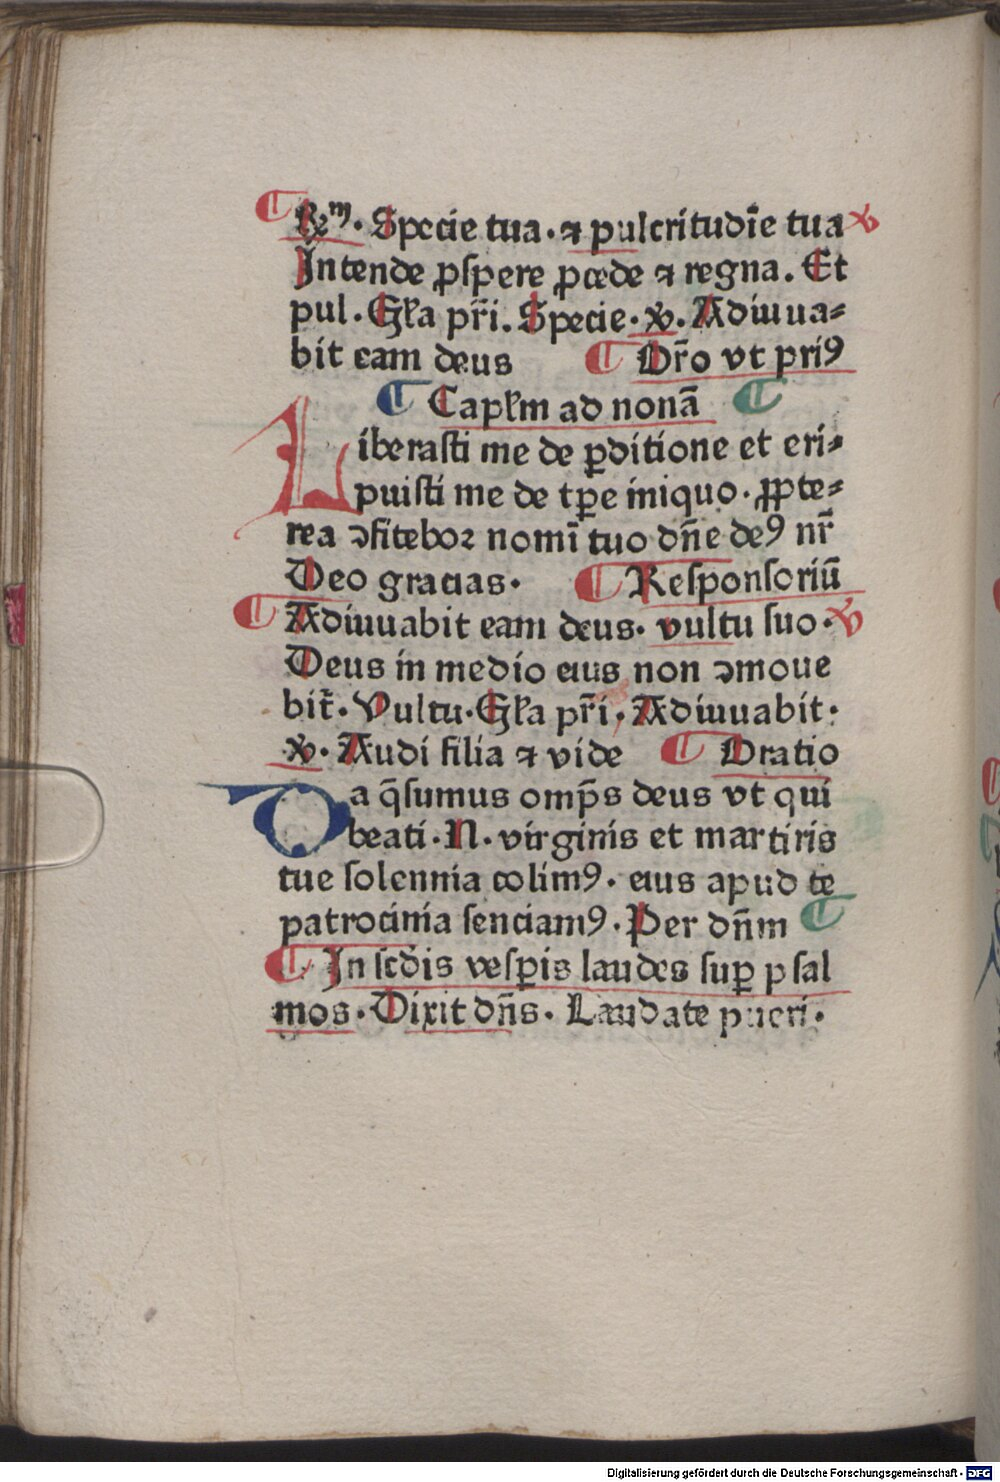 ¶ R̃ᵐ. Specie tua. ⁊ pulcritudīe tua ℣
Intende ꝓspere ꝓcede ⁊ regna. Et
pul. Gl'a pr̃i. Specie. ℣. Adiuua⸗
bit eam deus ¶ Or̃o vt priꝰ
¶ Capl'm ad nonā ¶
Liberasti me de ꝑditione et eri⸗
puisti me de tꝑe iniquo. ꝓpte⸗
rea ꝯfitebor nomī tuo dn̄e deꝰ nr̄
Deo gracias. ¶ Responsoriū
¶ Adiuuabit eam deus. vultu suo. ℣
Deus in medio eius non ꝯmoue
bit᷑. Vultu. Gl'a pr̃i. Adiuuabit.
℣. Audi filia ⁊ vide ¶ Oratio
Da q̄sumus omp̄s deus vt qui
beati. N. virginis et martiris
tue solennia colimꝰ. eius apud te
patrocinia senciamꝰ. Per dn̄m ¶
¶ In scd̄is vesꝑis laudes suꝑ psal
mos. Dixit dn̄s. Laudate pueri.
Digitalisierung gefördert durch die Deutsche Forschungsgemeinschaft - DFG